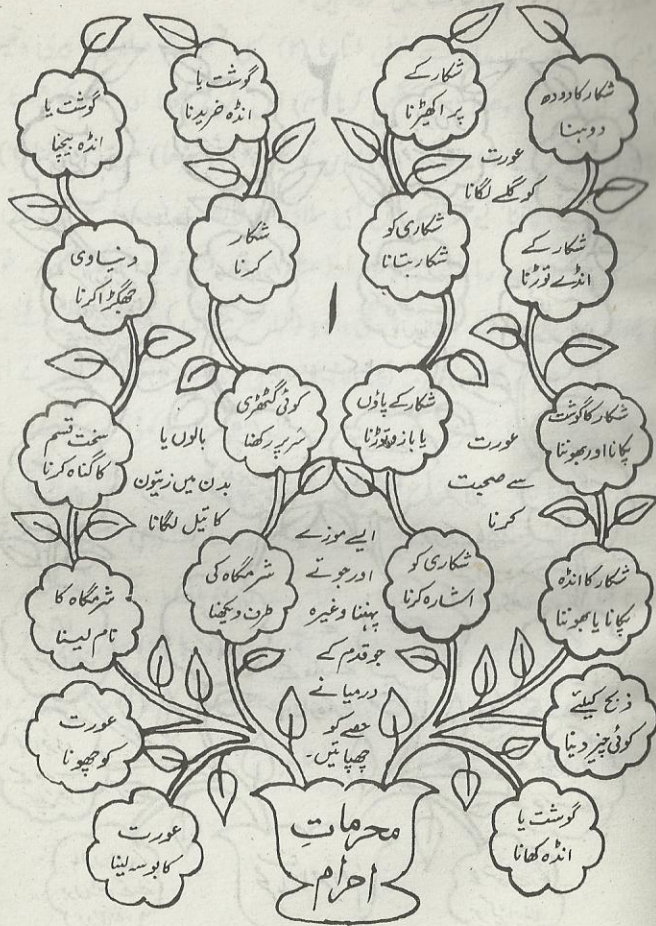 ۲
شکار کا دودھ
دوہنا
شکار کے
پر اکھیڑنا
گوشت یا
انڈہ خریدنا
گوشت یا
انڈہ بیچنا
عورت
کو گلے لگانا
شکار کے
انڈے توڑنا
شکاری کو
شکار بتانا
شکار
کرنا
دنیاوی
جھگڑا کرنا
۱
شکار کا گوشت
پکانا اور بھوننا
عورت
سے صحبت
کرنا
شکار کے پاؤں
یا بازو توڑنا
کوئی گٹھڑی
سر پر رکھنا
بالوں یا
بدن میں زیتون
کا تیل لگانا
سخت قسم
کا گناہ کرنا
شکار کا انڈہ
پکانا یا بھوننا
شکاری کو
اشارہ کرنا
ایسے موزے
اور جوتے
پہننا وغیرہ
جو قدم کے
درمیانے
حصے کو
چھپائیں۔
شرمگاہ کی
طرف دیکھنا
شرمگاہ کا
نام لینا
ذبح کیلئے
کوئی چیز دینا
عورت
کو چھونا
گوشت یا
انڈہ کھانا
عورت
کا بوسہ لینا
محرماتِ
احرام